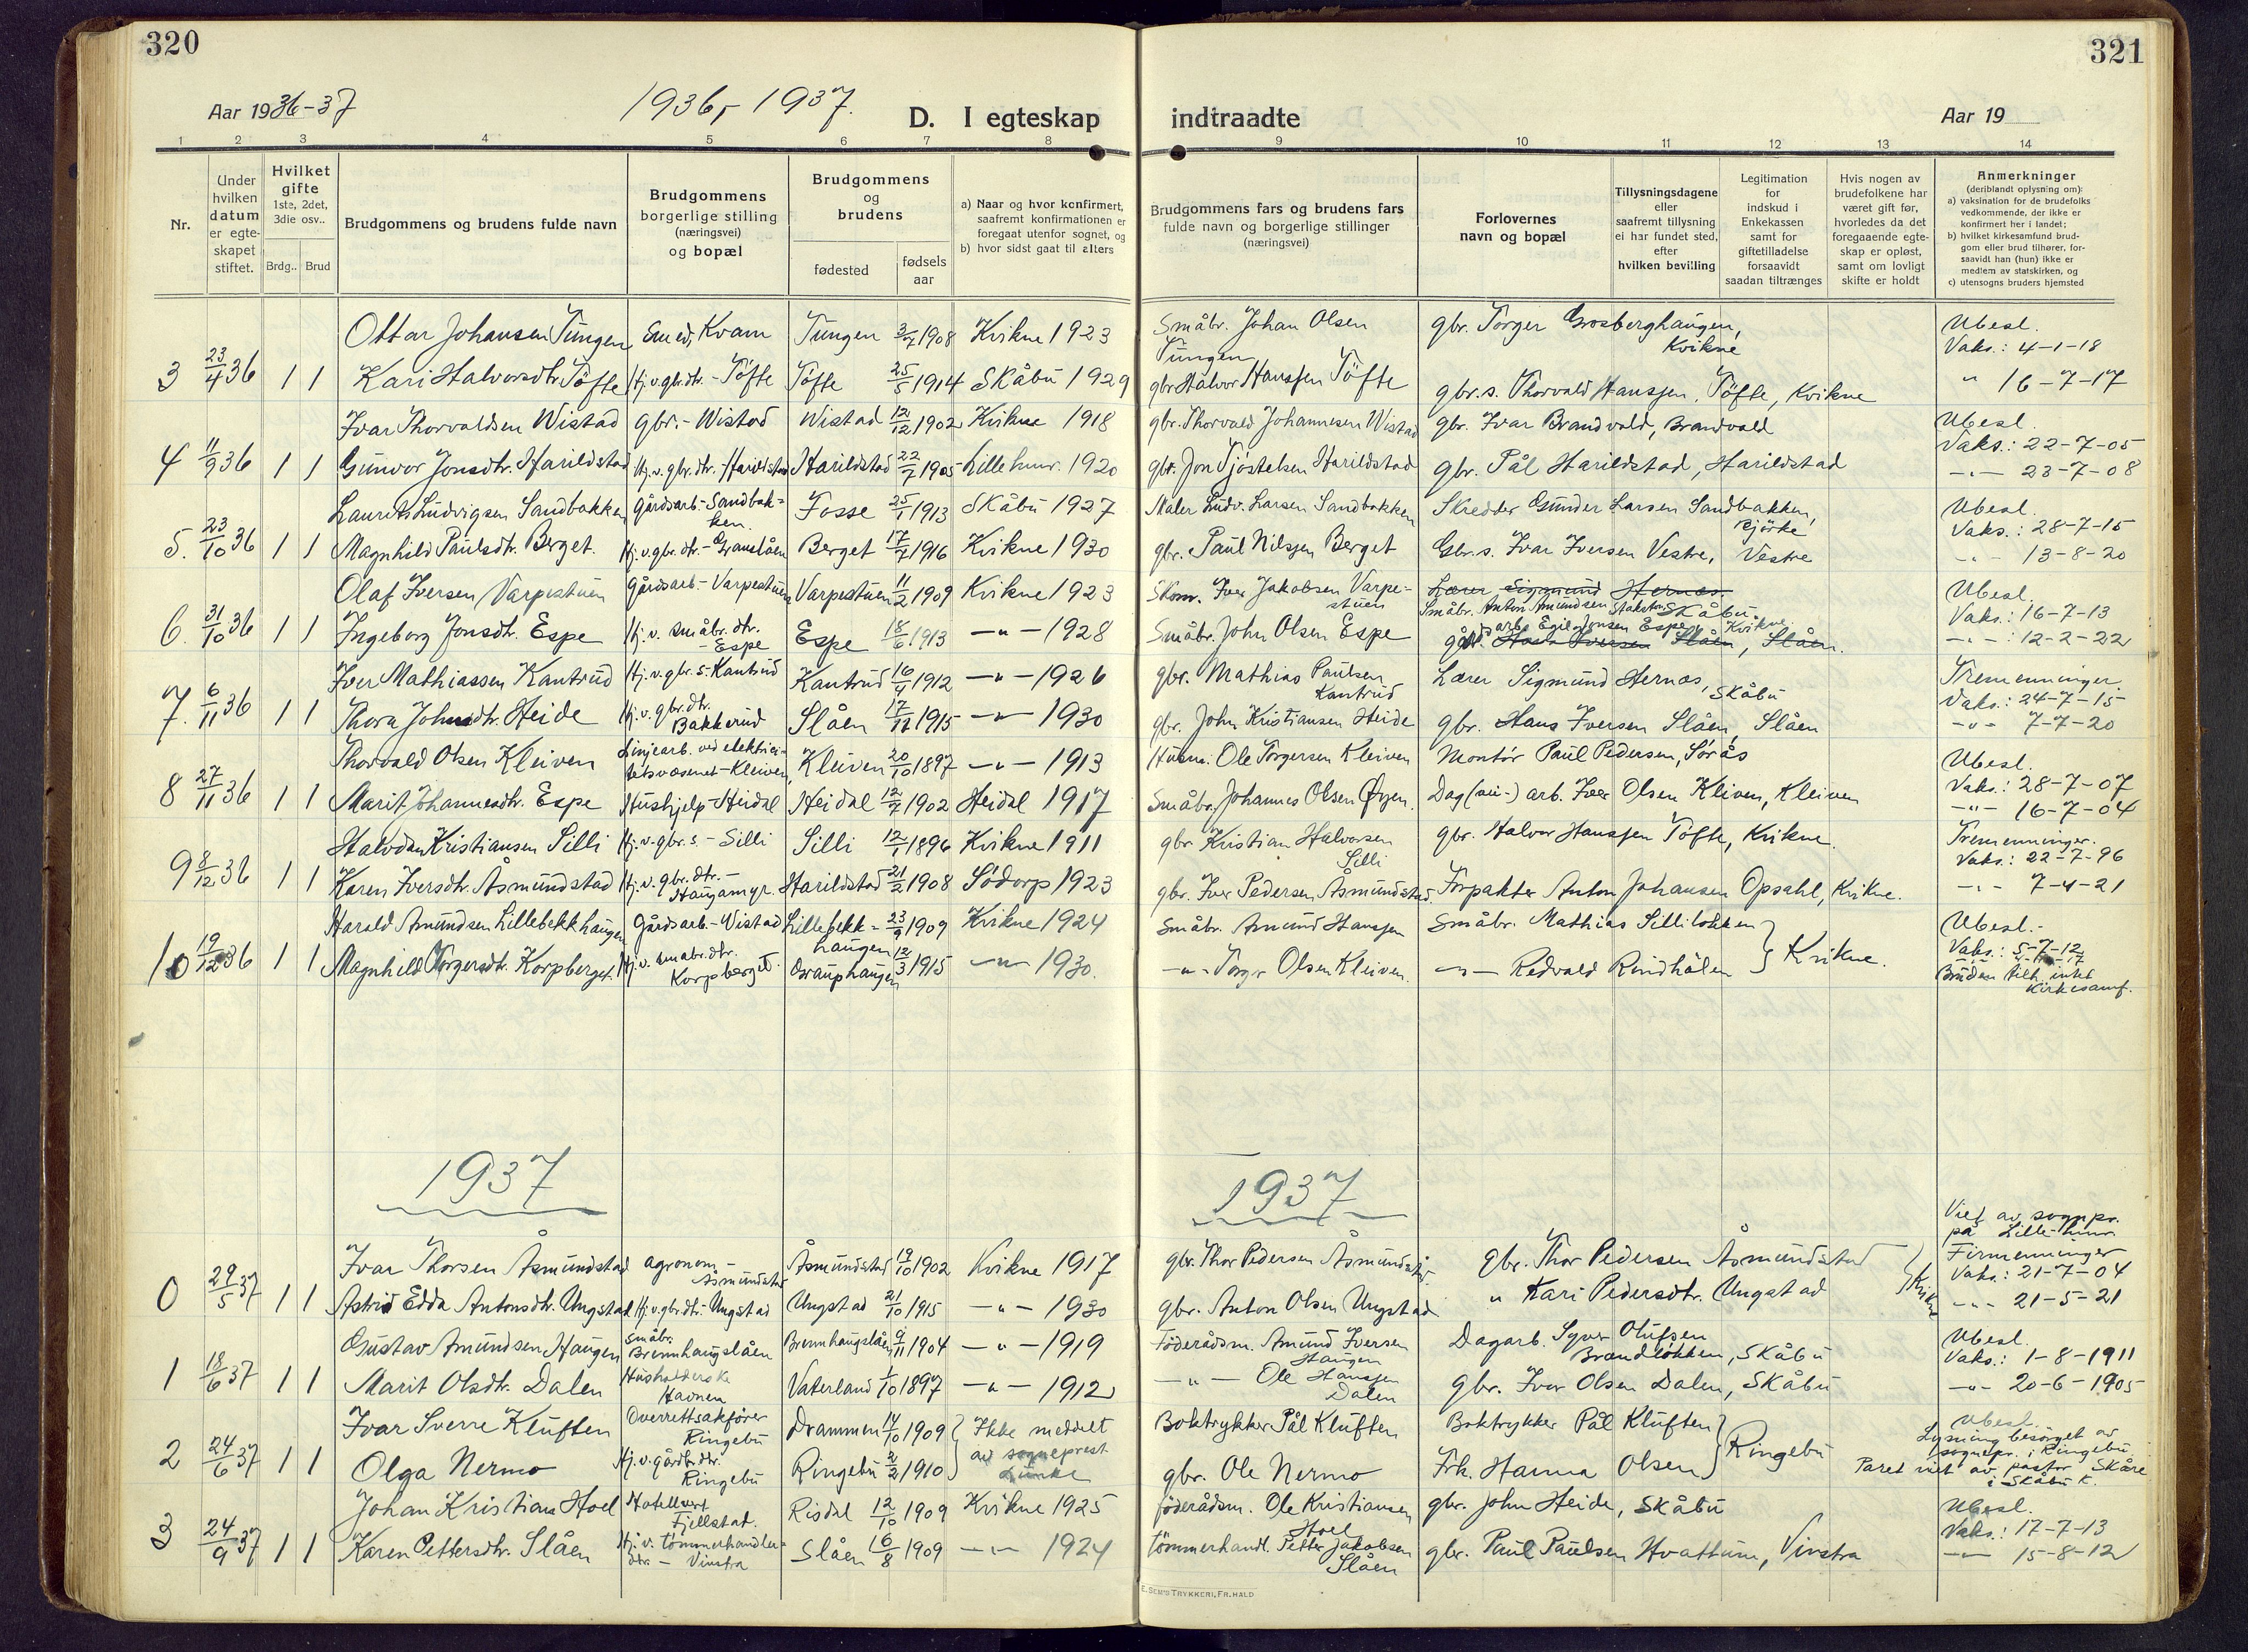 320
Aar 1936-37
1936, - 1937.
D. I egteskap
1 2 3 4 5 6 7 8
Nr.
Under hvilken datum er egteskapet stiftet.
Hvilket gifte 1ste, 2det, 3die osv..
Brdg.. Brud
Brudgommens og brudens fulde navn
Brudgommens borgerlige stilling (næringsvei) og bopæl
Brudgommens og brudens
fødested
fødsels aar
a) Naar og hvor konfirmert, saafremt konfirmationen er foregaat utenfor sognet, og
b) hvor sidst gaat til alters
3 23/4 36 1 1
Ottar Johansen Tungen Smed, Kvam Tungen 3/7 1908 Kvikne 1923
Kari Halvorsdtr. Töfte Hj.v.gbr.dtr. - Töfte Töfte 25/5 1914 Skåbu 1929
4 11/9 36 1 1
Ivar Thorvaldsen Wistad gbr. - Wistad Wistad 12/12 1902 Kvikne 1918
Gunvor Jonsdtr. Harildstad Hj.v.gbr.dtr. - Harildstad Harildstad 22/7 1905 Lillehmr. 1920
5. 23/10 36 1 1
Laurits Ludvigsen Sandbakken Gårdsarb. - Sandbakken. Fosse 25/1 1913 Skåbu 1927
Magnhild Paulsdtr. Berget. Hj.v.gbr.dtr. - Granslåen Berget 17/4 1916 Kvikne 1930
6. 31/10 36 1 1
Olaf Iversen Varpestuen Gårdsarb - Varpestuen Varpestuen 11/2 1909 Kvikne 1923
Ingeborg Jonsdtr. Espe Hj.v. småbr.dtr. - Espe Espe 18/6 1913 - " - 1928
7. 6/11 36 1 1
Iver Mathiassen Kantrud Hj.v.gbr.s. Kantrud Kantrud 16/4 1912 - " - 1926
Thora Johnsdtr. Heide Hj.v.gbr.dtr. Bakkerud Slåen 17/11 1915 - " - 1930
8 27/11 36 1 1
Thorvald Olsen Kleiven Linjearb. ved elektricitetsvæsenet - Kleiven, Kleiven 20/10 1897 - " - 1913
Marit Johannesdtr. Espe Hushjelp - Heidal Heidal 12/7 1902 Heidal 1917
9 8/12 36 1 1
Halvdan Kristiansen Silli Hj.v.gbr.s. - Silli Silli 12/1 1896 Kvikne 1911
Karen Iversdtr. Åsmundstad Hj.v.gbr.dtr. - Haugamyr. Harildstad 21/2 1908 Södorp 1923
10 19/12 36 1 1
Harald Amundsen Lillebekkhaugen Gårdsarb - Wistad Lillebekkhaugen 23/9 1909 Kvikne 1924
Magnhild Torgersdtr. Korpberget. Hj.v. småbr.dtr. Korpberget. Grauphaugen 12/3 1915 - " - 1930.
1937
0 29/5 37 1 1
Ivar Thorsen Åsmundstad agronom - Åsmundstad Åsmundstad 19/10 1902 Kvikne 1917
Astrid Edda Antonsdtr. Ungstad Hj.v.gbrdtr. Ungstad Ungstad 21/10 1915 - " - 1930
1 18/6 37 1 1
Gustav Amundsen Haugen småbr. Brennhaugslåen Brennhaugslåen 9/11 1904 - " - 1919
Marit Olsdtr. Dalen Husholderske Havnen Vaterland 1/10 1897 - " - 1912
2 24/6 37 1 1
Ivar Sverre Kluften Overrettsakfører Ringebu Drammen 14/10 1909 } Ikke meddelt
Olga Nermo Hj.v.gårdbr.dtr. Ringebu Ringebu 2/2 1910 } av sogneprest Lunke
3 24/9 37 1 1
Johan Kristians Hoel Hotellvert Fjellstad. Risdal 12/10 1909 Kvikne 1925
Karen Pettersdtr. Slåen Hj.v. tömmerhandlerdtr. - Vinstra Slåen 6/8 1909 - " - 1924
321
indtraadte
Aar 19
9 10 11 12 13 14
Brudgommens fars og brudens fars fulde navn og borgerlige stillinger (næringsvei)
Forlovernes navn og bopæl
Tillysningsdagene eller saafremt tillysning ei har fundet sted, efter hvilken bevilling
Legitimation for indskud i Enkekassen samt for giftetilladelse forsaavidt saadan tiltrænges
Hvis nogen av brudefolkene har været gift før, hvorledes da det foregaaende egteskap er opløst, samt om lovligt skifte er holdt
Anmerkninger (deriblandt oplysning om):
a) vaksination for de brudefolks vedkommende, der ikke er konfirmert her i landet;
b) hvilket kirkesamfund brudgom eller brud tilhører, forsaavidt han (hun) ikke er medlem av statskirken, og
c) utensogns bruders hjemsted
Småbr. Johan Olsen Tungen gbr. Torger Grosberghaugen, Kvikne Ubesl. Vaks.: 4-1-18
gbr Halvor Hanssen Töfte gbr.s. Thorvald Hanssen, Töfte, Kvikne " 16-7-17
gbr. Thorvald Johannesen Wistad gbr. Ivar Brandvold, Brandvold Ubesl. Vaks.: 22-7-05
gbr. Jon Tjøstelsen Harildstad gbr. Pål Harildstad, Harildstad - " - 23-7-08
Maler Ludv. Larsen Sandbakken Skredder Gunder Larsen Sandbakken, Björke Ubesl. Vaks.: 28-7-15
gbr. Paul Nilssen Berget Gbr.s. Ivar Iversen Vestre, Vestre - " - 13-8-20
Skom. Iver Jakobsen Varpestuen Lærer Sigmund Hernæs. Småbr. Anton Amundsen Skåbu Ubesl. Vaks.: 16-7-13
Småbr. John Olsen Espe gårdsarb. Egil Jonsen Espe, Kvikne Hans Iversen Slåen, Slåen. - " - : 12-2-22
gbr. Mathias Paulsen Kantrud Lærer Sigmund Hernæs, Skåbu Tremenninger Vaks.: 24-7-15
gbr. John Kristiansen Heide gbr. Hans Iversen Slåen, Slåen - " - 7-7-20
Husm. Ole Torgersen Kleiven Montör Paul Pedersen, Sörås Ubesl. Vaks.: 28-7-07
Småbr. Johannes Olsen Øyen. Dag (vei-) arb. Iver Olsen Kleiven, Kleiven - " - 16-7-04
gbr Kristian Halvorsen Silli gbr. Halvor Hanssen Töfte, Kvikne. Tremenninger. Vaks.: 22-7-96
gbr. Iver Pedersen Åsmundstad. Forpakter Anton Johansen Opsahl, Kvikne. - " - 7-4-21
Småbr. Amund Hanssen Småbr. Mathias Sillilökken } Kvikne. Ubesl. - Vaks.: 5-7-12
- " - Torger Olsen Kleiven. - " - Redvald Rindhölen Bruden tilh. intet Kirkesamf.
1937
gbr. Thor Pedersen Åsmundstad. gbr. Thor Pedersen Åsmundstad } Kvikne Viet av sognepr. på Lillehmr Firmenninger Vaks.: 21-7-04
gbr. Anton Olsen Ungstad " Kari Pedersdtr. Ungstad - " - 21-5-21
Föderådsm. Amund Iversen Haugen Dagarb. Syver Olufsen Brandlökken, Skåbu Ubesl. Vaks.: 1-8-1911
- " - Ole Hanssen Dalen gbr. Iver Olsen Dalen, Skåbu - " - 20-6-1905
Boktrykker Pål Kluften Boktrykker Pål Kluften } Ringebu Ubesl. Lysning besörget av sognepr. i Ringebu.
gbr. Ole Nermo Frk. Hanna Olsen Paret viet av pastor Skåre i Skåbu k.
föderådsm. Ole Kristiansen Hoel gbr. John Heide, Skåbu Ubesl. Vaks.: 17-7-13
tömmerhandl. Petter Jakobsen Slåen gbr. Paul Paulsen Hvattum, Vinstra - " - 15-8-12
E. SEM'S TRYKKERI, FR. HALD